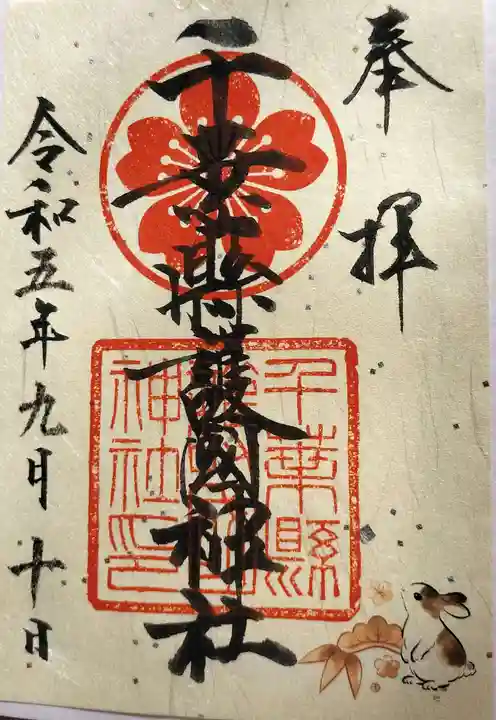 奉拝
千葉縣護國神社
千葉縣
護國
神社印
令和五年九月十日